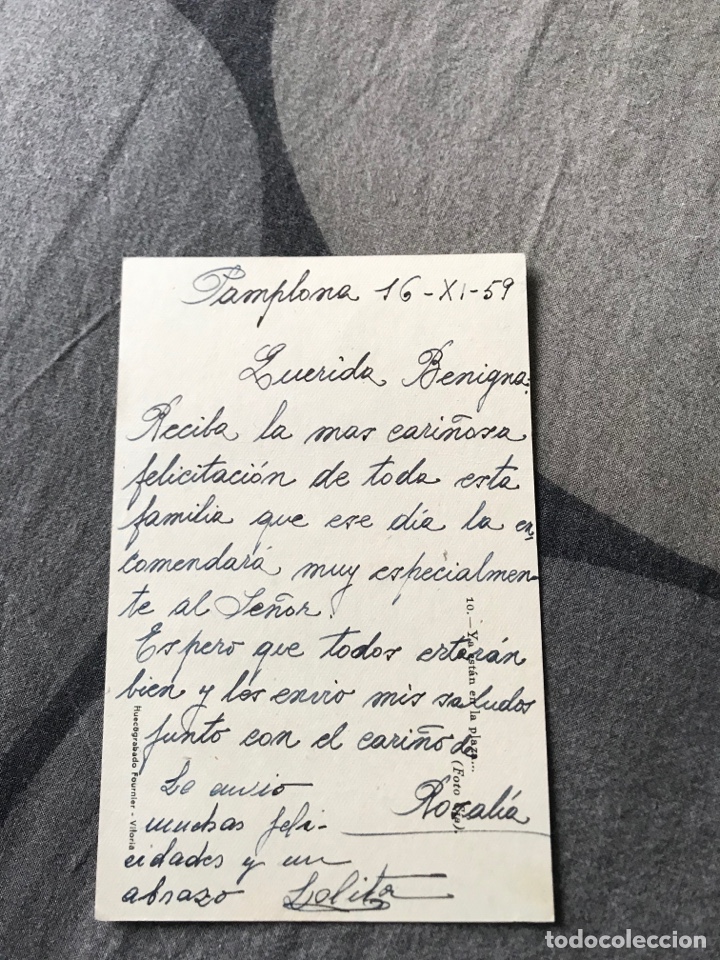 Pamplona 16-XI-59
Querida Benigna:
Reciba la mas cariñosa
felicitación de toda esta
familia que ese día la en-
comendará muy especialmen-
te al Señor.
Espero que todos estarán
bien y les envio mis saludos
junto con el cariño de
Rosalía
Le envio
muchas feli-
cidades y un
abrazo Lolita
10.—Ya están en la plaza...
(Foto
Huecograbado Fournier - Vitoria
todocoleccion